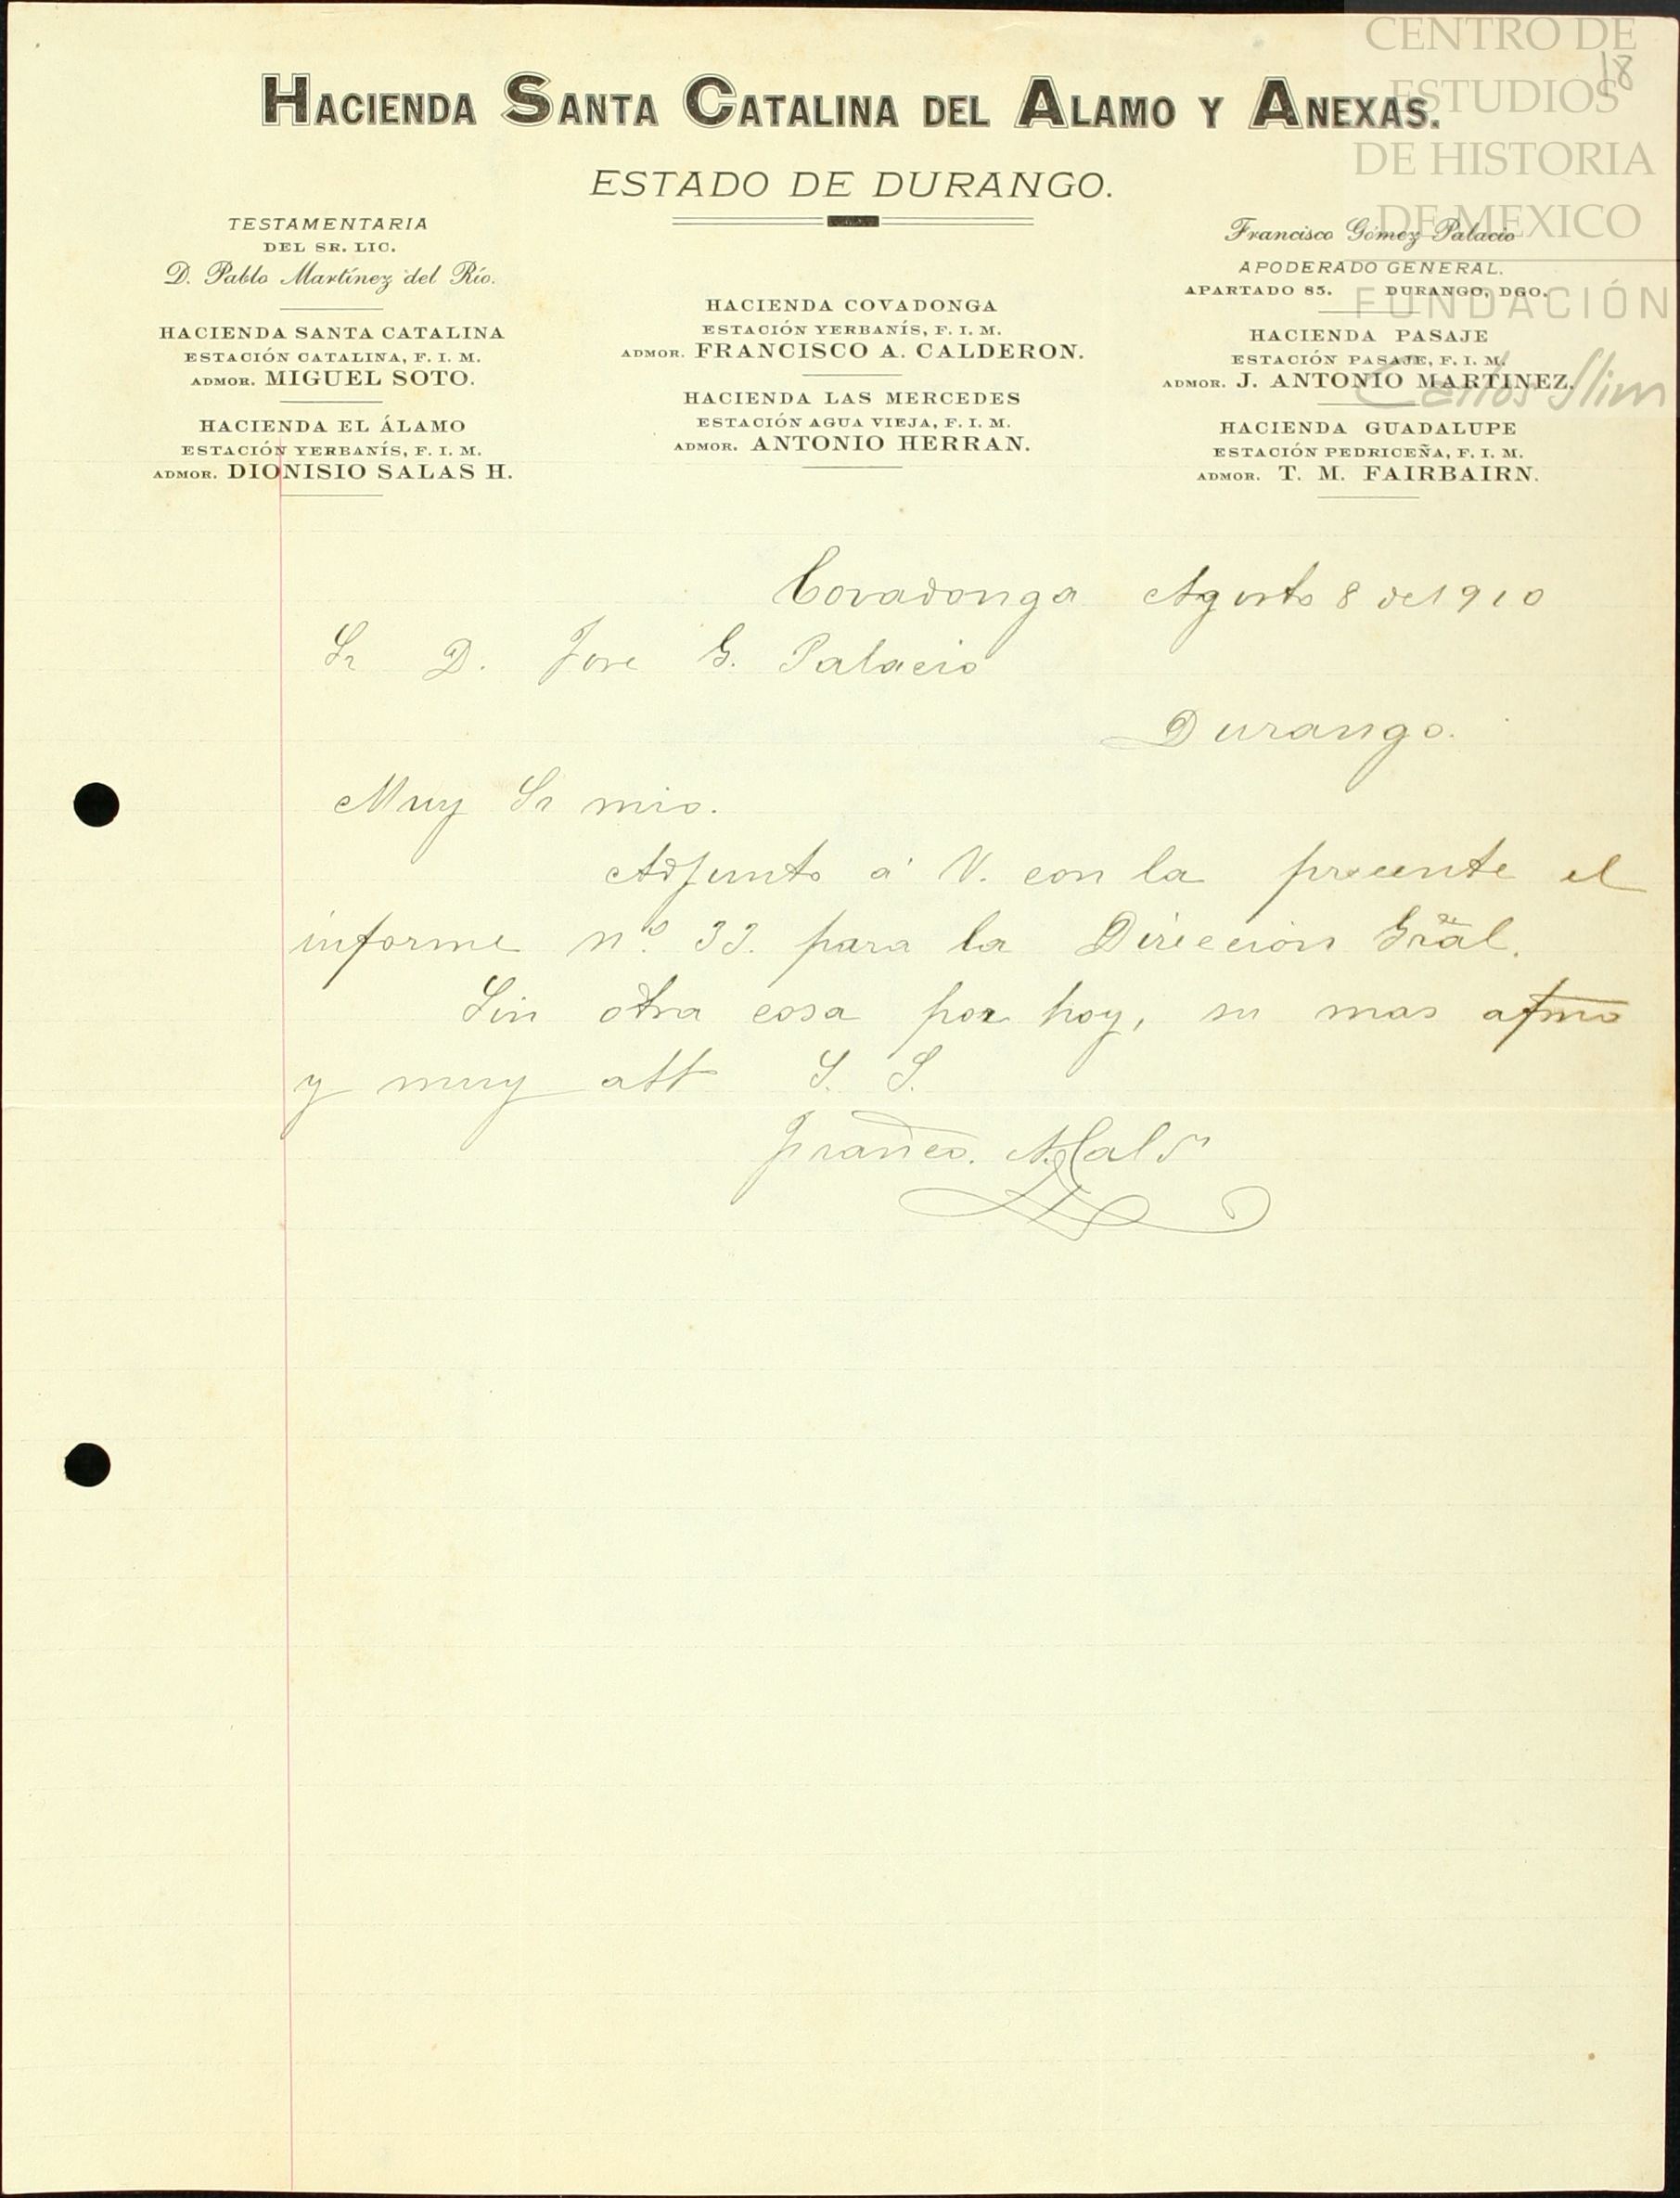 CENTRO DE
ESTUDIOS
DE HISTORIA
DE MEXICO
FUNDACIÓN
Carlos Slim
18
HACIENDA SANTA CATALINA DEL ALAMO Y ANEXAS.
ESTADO DE DURANGO.
TESTAMENTARIA
DEL SR. LIC.
D. Pablo Martínez del Río.
HACIENDA SANTA CATALINA
ESTACIÓN CATALINA, F. I. M.
ADMOR. MIGUEL SOTO.
HACIENDA EL ÁLAMO
ESTACIÓN YERBANÍS, F. I. M.
ADMOR. DIONISIO SALAS H.
HACIENDA COVADONGA
ESTACIÓN YERBANÍS, F. I. M.
ADMOR. FRANCISCO A. CALDERON.
HACIENDA LAS MERCEDES
ESTACIÓN AGUA VIEJA, F. I. M.
ADMOR. ANTONIO HERRAN.
Francisco Gómez Palacio
APODERADO GENERAL.
APARTADO 85. DURANGO, DGO.
HACIENDA PASAJE
ESTACIÓN PASAJE, F. I. M.
ADMOR. J. ANTONIO MARTINEZ.
HACIENDA GUADALUPE
ESTACIÓN PEDRICEÑA, F. I. M.
ADMOR. T. M. FAIRBAIRN.
Covadonga Agosto 8 de 1910
Sr D. Jose G. Palacio
Durango.
Muy Sr mio.
Adjunto á V. con la precente el
informe nº 33. para la Direccion Gral.
Sin otra cosa por hoy, su mas afmo
y muy att S. S.
Franco. A. Cal